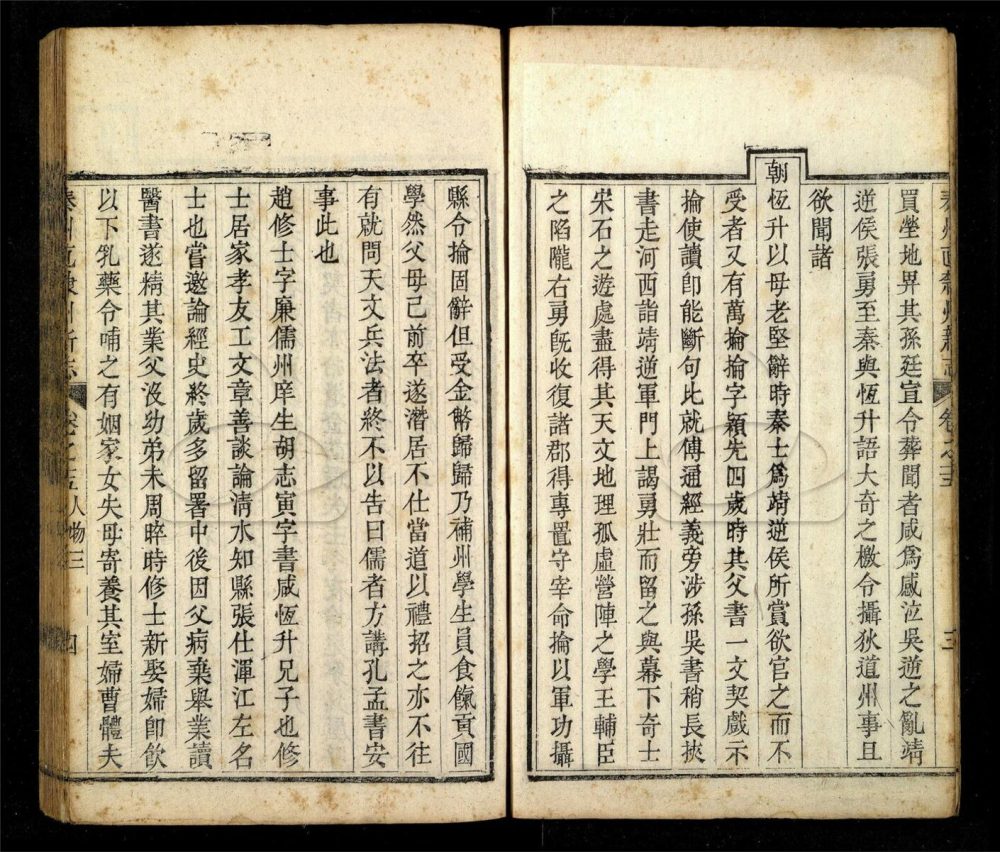 秦州直隸州新志 卷之十五 三
買塋地畀其孫廷宣令葬聞者咸爲感泣吳逆之亂靖
逆侯張勇至秦與恆升語大奇之檄令攝狄道州事且
欲聞諸
朝恆升以母老堅辭時秦士爲靖逆侯所賞欲官之而不
受者又有萬掄掄字穎先四歲時其父書一文契戲示
掄使讀卽能斷句比就傅通經義旁涉孫吳書稍長挾
書走河西詣靖逆軍門上謁勇壯而留之與幕下奇士
宋石之遊處盡得其天文地理孤虛營陣之學王輔臣
之陷隴右勇旣收復諸郡得專置守宰命掄以軍功攝
縣令掄固辭但受金幣歸歸乃補州學生員食餼貢國
學然父母已前卒遂潛居不仕當道以禮招之亦不往
有就問天文兵法者終不以告曰儒者方講孔孟書安
事此也
趙修士字廉儒州庠生胡志寅字書咸恆升兄子也修
士居家孝友工文章善談論淸水知縣張仕渾江左名
士也嘗邀論經史終歲多留署中後因父病棄舉業讀
醫書遂精其業父沒幼弟未周晬時修士新娶婦卽飮
以下乳藥令哺之有姻家女失母寄養其室婦曹體夫
秦州直隸州新志 卷之十五人物三 四